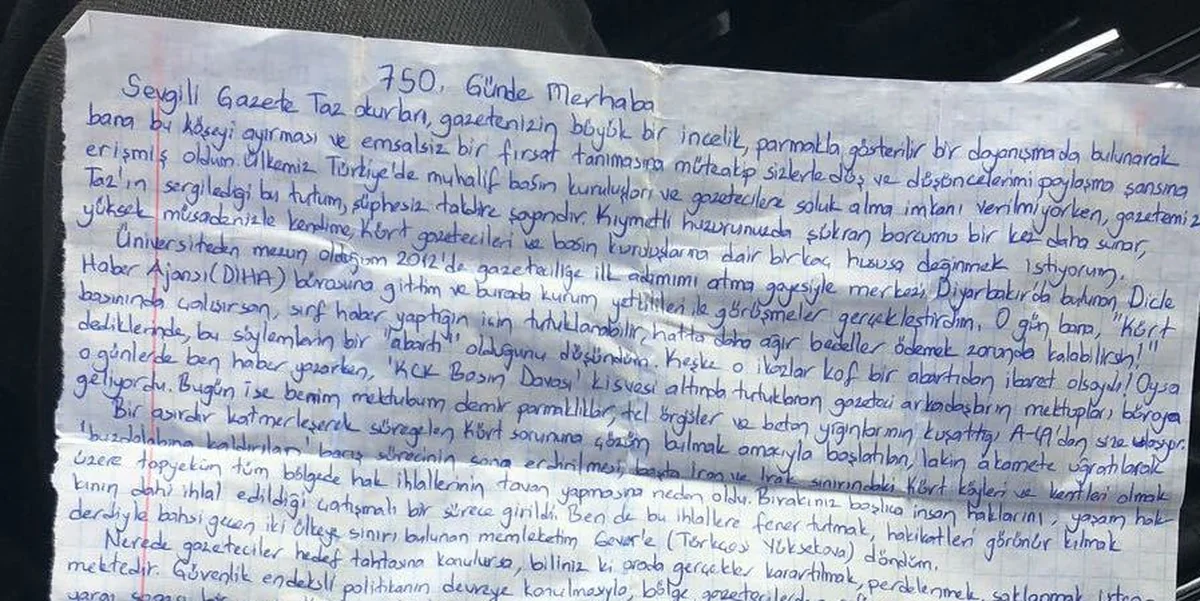 750. Günde Merhaba
Sevgili Gazete Taz okurları, gazetenizin büyük bir incelik, parmakla gösterilir bir dayanışmada bulunarak
bana bu köşeyi ayırması ve emsalsiz bir fırsat tanımasına müteakip sizlerle düş ve düşüncelerimi paylaşma şansına
erişmiş oldum. Ülkemiz Türkiye'de muhalif basın kuruluşları ve gazetecilere soluk alma imkanı verilmiyorken, gazetemiz
Taz'ın sergilediği bu tutum, şüphesiz takdire şayandır. Kıymetli huzurunuzda şükran borcumu bir kez daha sunar,
yüksek müsadenizle kendime, Kürt gazetecileri ve basın kuruluşlarına dair birkaç hususa değinmek istiyorum.
Üniversiteden mezun olduğum 2012'de gazeteciliğe ilk adımımı atma gayesiyle merkezi Diyarbakır'da bulunan Dicle
Haber Ajansı (DİHA) bürosuna gittim ve burada kurum yetkilileri ile görüşmeler gerçekleştirdim. O gün bana, "Kürt
basınında çalışırsan, sırf haber yaptığın için tutuklanabilir, hatta daha ağır bedeller ödemek zorunda kalabilirsin!"
dediklerinde, bu söylemlerin bir "abartı" olduğunu düşündüm. Keşke o ikazlar kof bir abartıdan ibaret olsaydı! Oysa
o günlerde ben haber yazarken, 'KCK Basın Davası' kisvesi altında tutuklanan gazeteci arkadaşların mektupları büroya
geliyordu. Bugün ise benim mektubum demir parmaklıklar, tel örgüler ve beton yığınlarının kuşattığı A-4'dan size ulaşıyor.
Bir asırdır katmerleşerek süregelen Kürt sorununa çözüm bulmak amacıyla başlatılan, lakin akamete uğratılarak
'buzdolabına kaldırılan' barış sürecinin sona erdirilmesi, başta İran ve Irak sınırındaki Kürt köyleri ve kentleri olmak
üzere topyekün tüm bölgede hak ihlallerinin tavan yapmasına neden oldu. Bırakınız başlıca insan haklarını, yaşam hak-
kının dahi ihlal edildiği çatışmalı bir sürece girildi. Ben de bu ihlallere fener tutmak, hakikatleri görünür kılmak
derdiyle bahsi geçen iki ülkeye sınırı bulunan memleketim Gever'e (Türkçesi Yüksekova) döndüm.
Nerede gazeteciler hedef tahtasına konulursa, biliniz ki orada gerçekler karartılmak, perdelenmek, saklanmak isten-
mektedir. Güvenlik endeksli politikanın devreye konulmasıyla, bölge